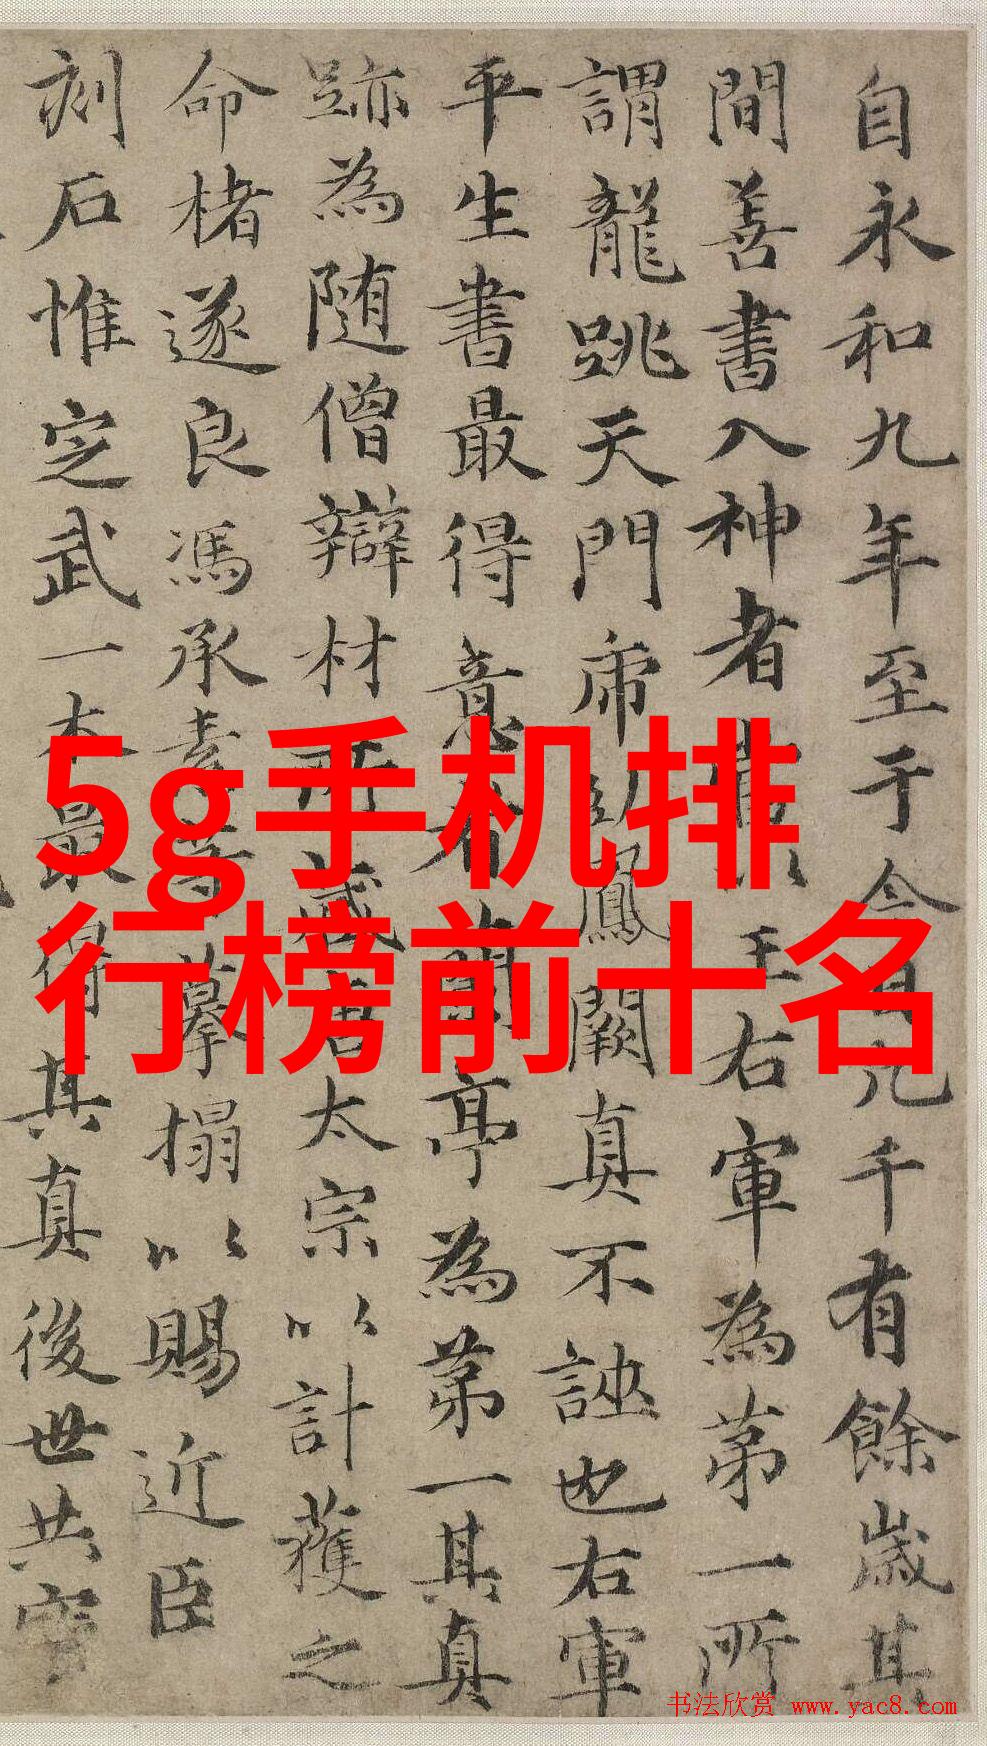 自永和九年至于今
九千有餘歲其
間善書入神者當以王右軍為苐一所
謂龍跳天門帍臥鳳闕真不誣也右軍
平生書最得意者蘭亭為苐一其真
跡為随僧辯材所藏唐太宗以計獲之
命楮遂良馮承素等摹搨以賜近臣
刻石惟定武一本最得其真後世共寶
5g手机排
行榜前十名
书法欣赏 www.yac8.com